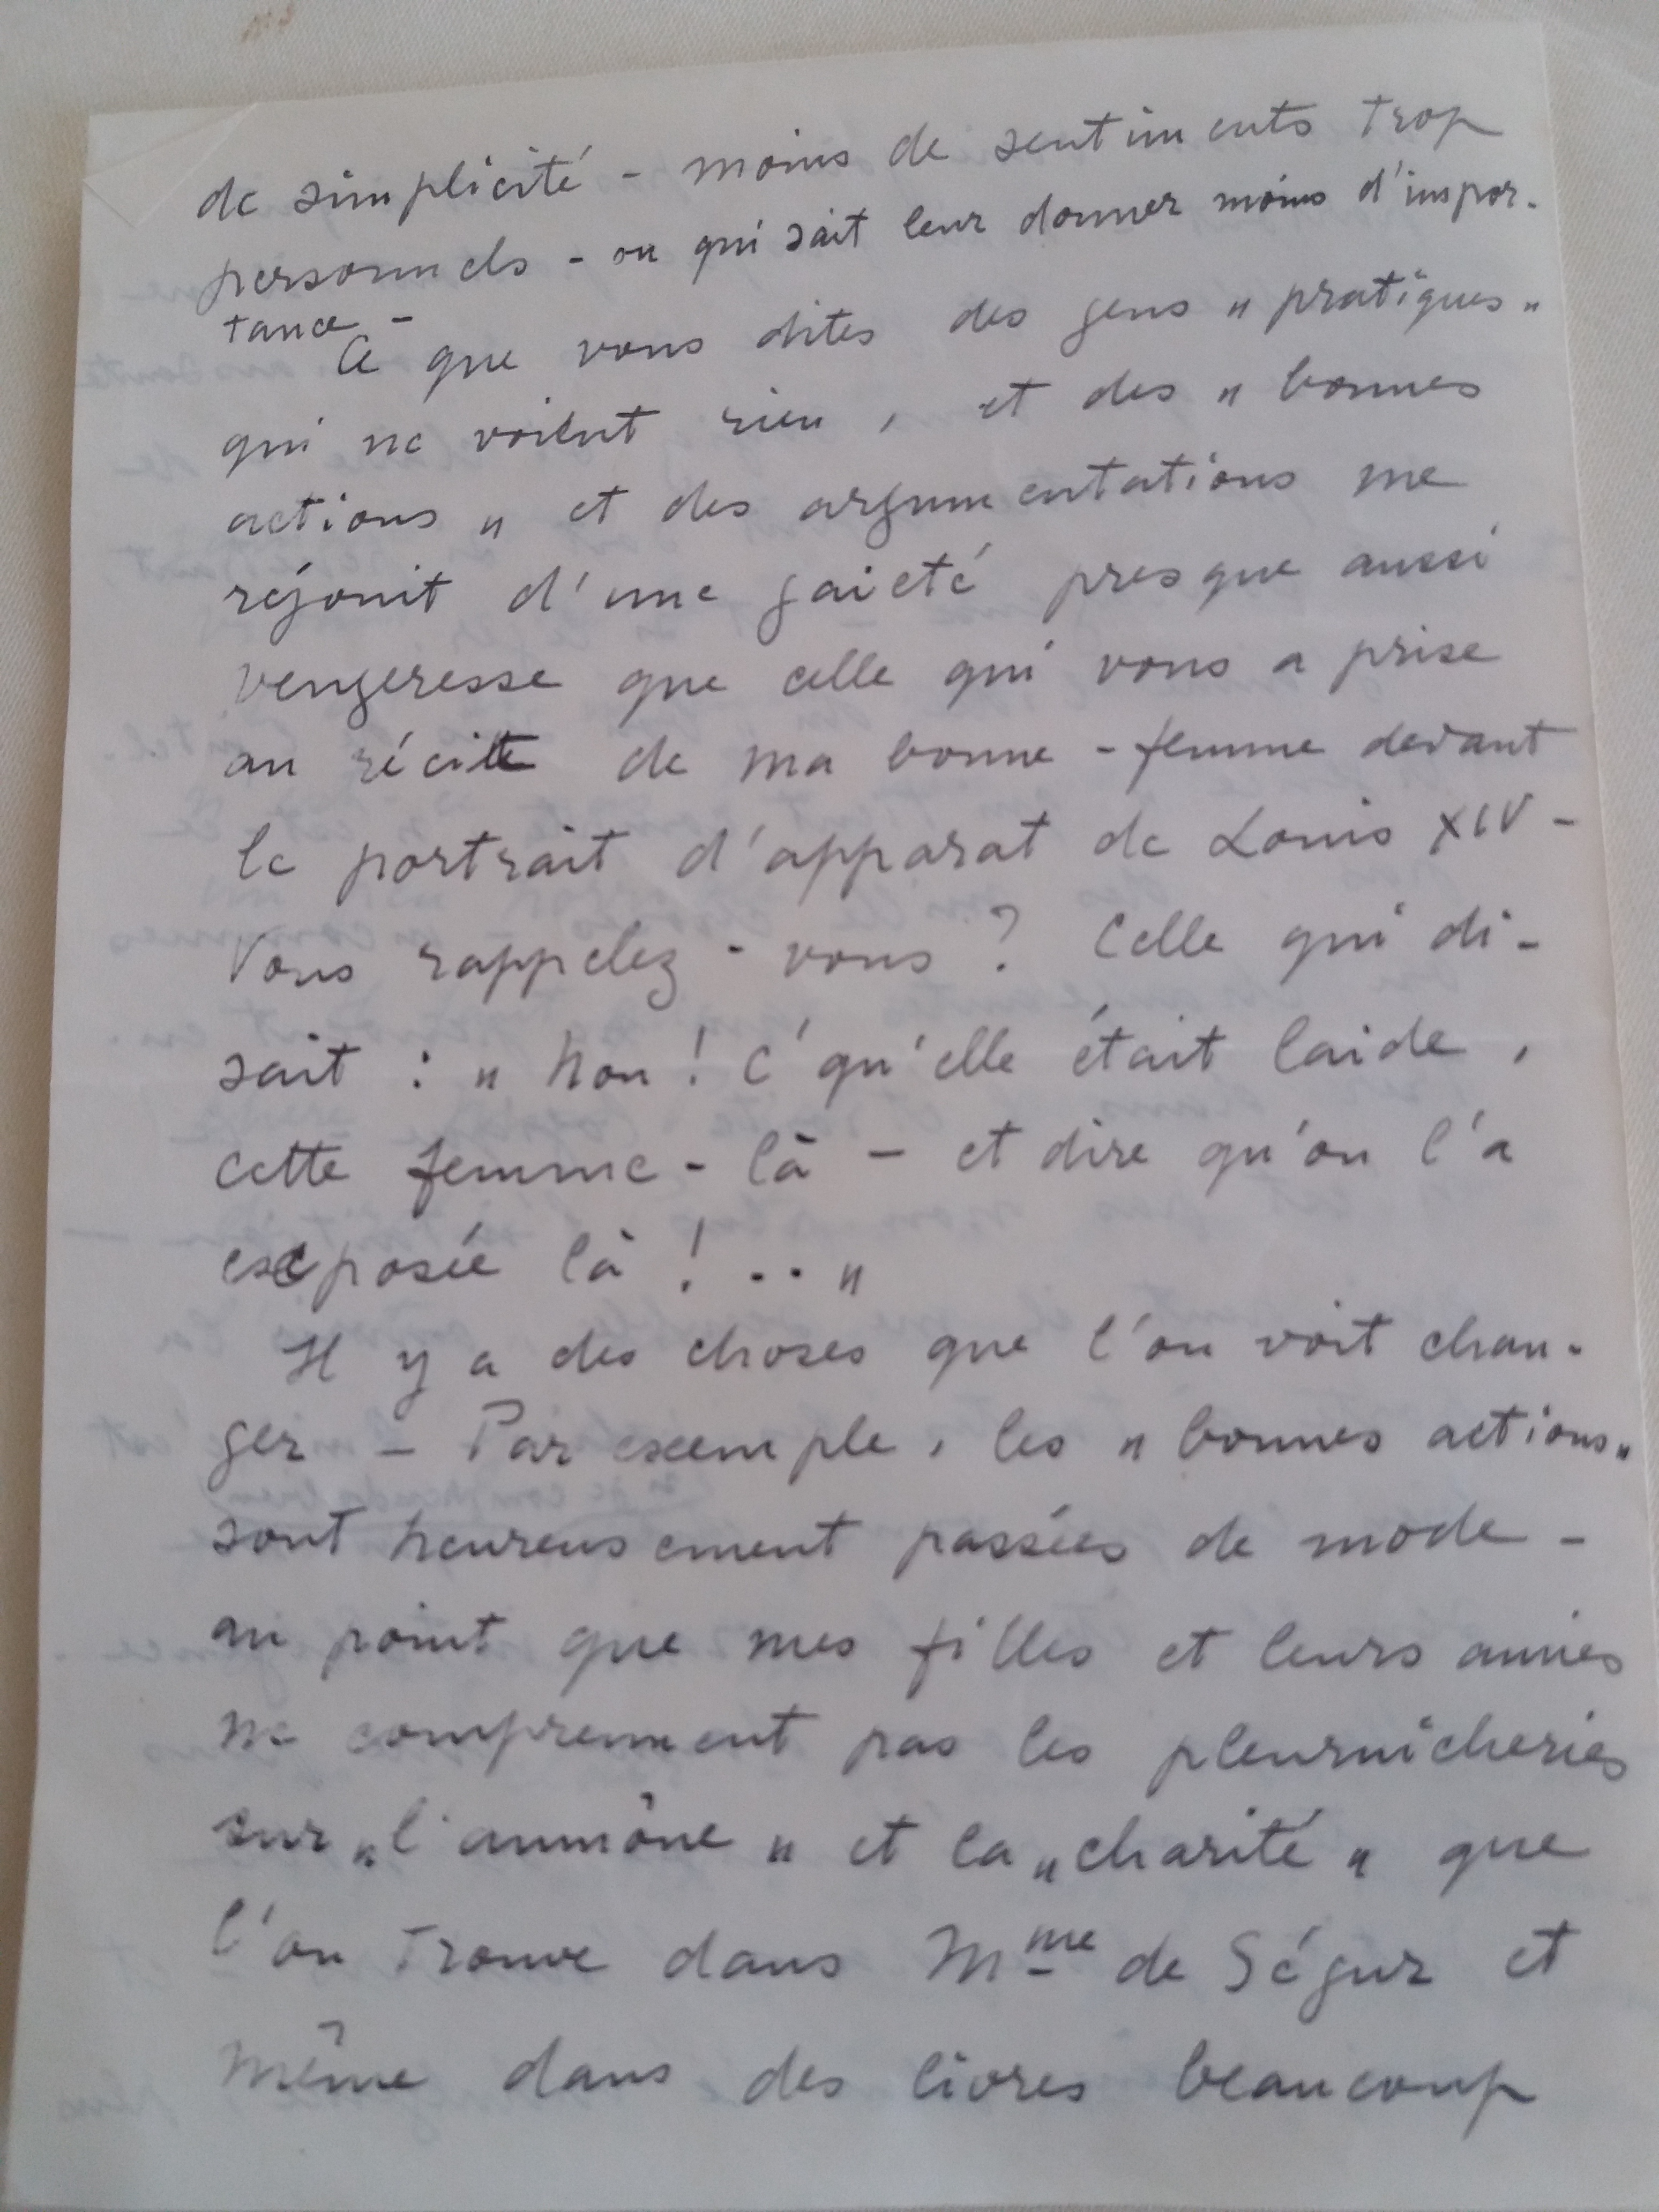 de simplicité - moins de sentiments trop
personnels - ou qui sait leur donner moins d'impor-
tance -
Ce que vous dites des gens " pratiques "
qui ne voient rien, et des " bonnes
actions " et des argumentations me
réjouit d'une gaieté presque aussi
vengeresse que celle qui vous a prise
au récit de ma bonne-femme devant
le portrait d'apparat de Louis XIV -
Vous rappelez-vous ? Celle qui di-
sait : " Non ! C'qu'elle était laide,
cette femme-là - et dire qu'on l'a
exposée là ! .. "
Il y a des choses que l'on voit chan-
ger - Par exemple, les " bonnes actions "
sont heureusement passées de mode -
au point que mes filles et leurs amies
ne comprennent pas les pleurnicheries
sur " l'aumône " et la " charité " que
l'on trouve dans Mme de Ségur et
même dans des livres beaucoup